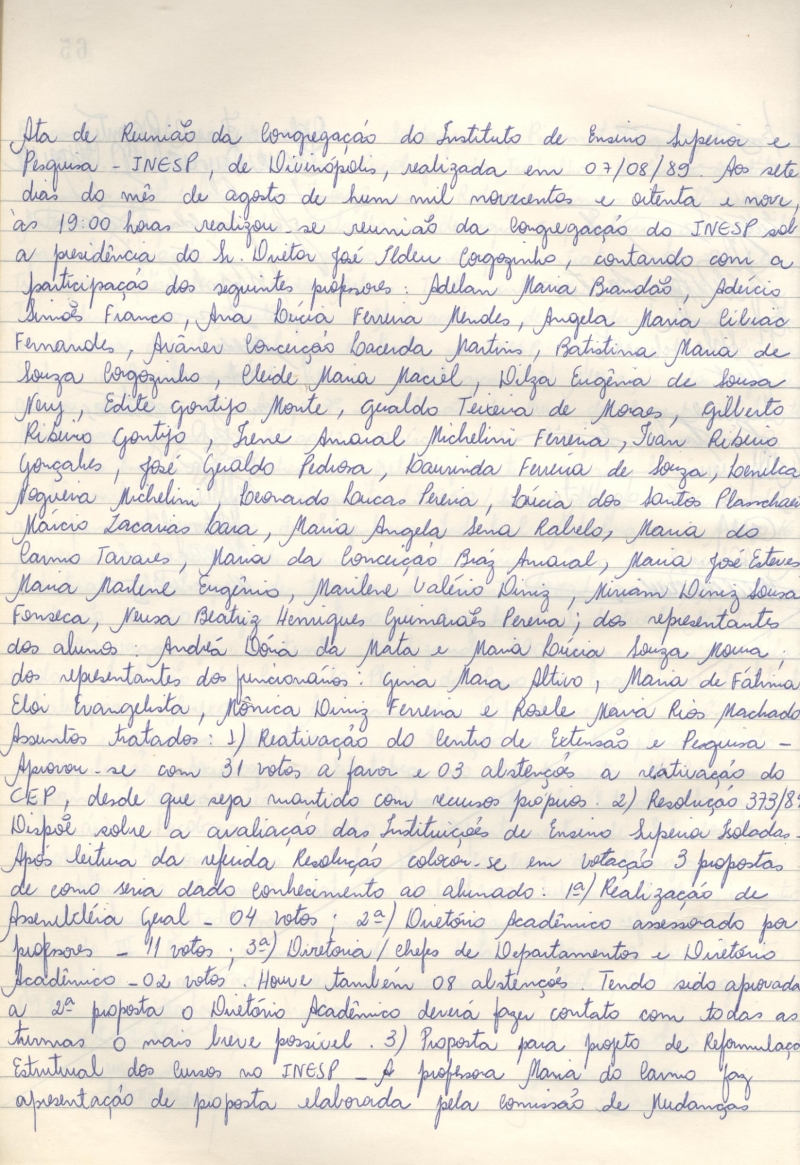 Ata de Reunião da Congregação do Instituto de Ensino Superior e
Pesquisa - INESP, de Divinópolis, realizada em 07/08/89. Aos sete
dias do mês de agosto de hum mil novecentos e oitenta e nove,
às 19:00 horas realizou-se reunião da Congregação do INESP sob
a presidência do Sr. Diretor José Ildeu Corgozinho, contando com a
participação dos seguintes professores: Adelan Maria Brandão, Adércio
Simões Franco, Ana Lúcia Ferreira Mendes, Angela Maria Cibiac
Fernandes, Avâner Conceição Lacerda Martins, Batistina Maria de
Souza Corgozinho, Cleide Maria Maciel, Dilza Eugênia de Sousa
Nery, Edite Gontijo Monte, Geraldo Teixeira de Moraes, Gilberto
Ribeiro Gontijo, Irene Amaral Michelini Ferreira, Ivan Ribeiro
Gonçalves, José Geraldo Pedrosa, Laurinda Ferreira de Souza, Lenilca
Nogueira Michelini, Leonardo Lucas Pereira, Lúcia dos Santos
Márcio Zacarias Lara, Maria Angela Sena Rabelo, Maria do
Carmo Tavares, Maria da Conceição Bráz Amaral, Maria José Esteves
Maria Marlene Eugênio, Marilene Valério Diniz, Miriam Diniz Sousa
Fonseca, Neusa Beatriz Henriques Guimarães Pereira; dos representantes
dos alunos: Andréa Dória da Mata e Maria Lúcia Souza Moura;
dos representantes dos funcionários: Gina Mara Altivo, Maria de Fátima
Eloi Evangelista, Mônica Diniz Ferreira e Rosele Maria Rios Machado
Assuntos tratados: 1) Reativação do Centro de Extensão e Pesquisa -
Aprovou-se com 31 votos a favor e 03 abstenções a reativação do
CEP, desde que seja mantido com recursos próprios. 2) Resolução 373/89
Dispõe sobre a avaliação das Instituições de Ensino Superior Isoladas.
Após leitura da referida Resolução colocou-se em votação 3 propostas
de como seria dado conhecimento ao alunado: 1ª) Realização de
Assembléia Geral - 04 votos; 2ª) Diretório Acadêmico assessorado por
professores - 11 votos; 3ª) Diretoria/chefes de Departamentos e Diretório
Acadêmico - 02 votos. Houve também 08 abstenções. Tendo sido aprovada
a 2ª proposta o Diretório Acadêmico deverá fazer contato com todas as
turmas o mais breve possível. 3) Proposta para projeto de Reformulaço
Estrutural dos Cursos no INESP - A professora Maria do Carmo faz
apresentação de proposta elaborada pela comissão de Mudanças